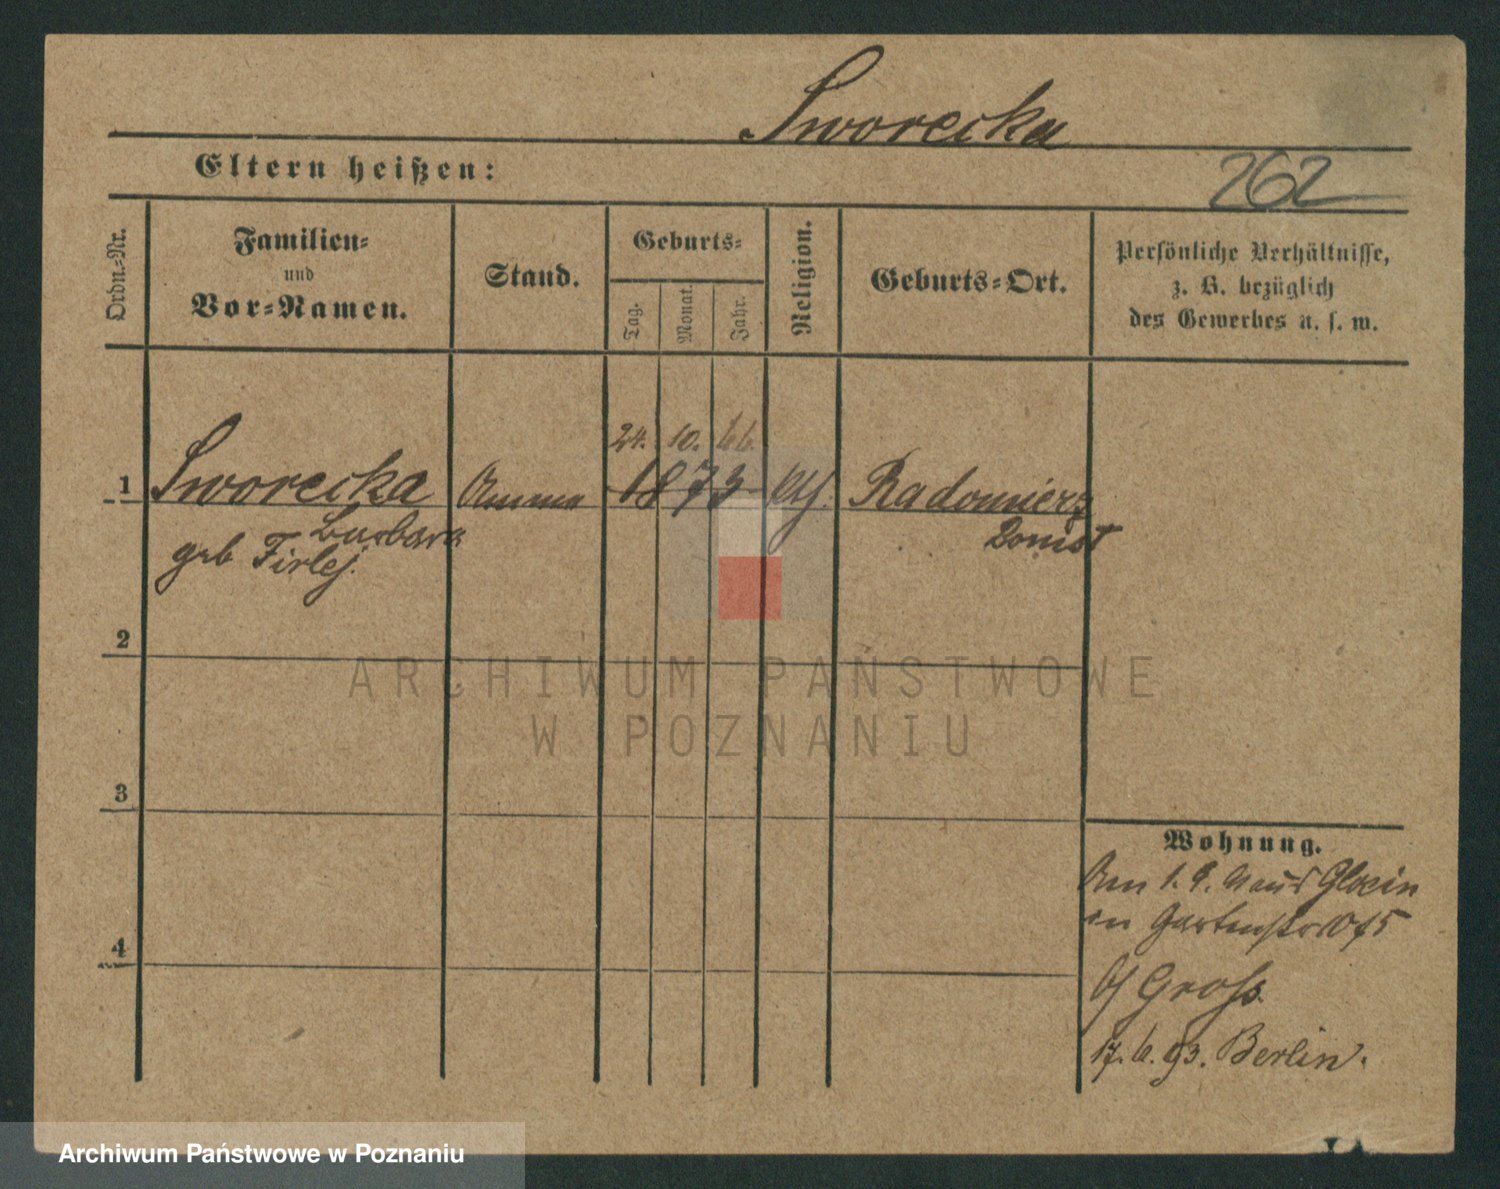 Sworecka
Eltern heißen:
262
Ordn.-Nr.
Familien-
und
Vor-Namen.
Stand.
Geburts-
Tag.
Monat.
Jahr.
Religion.
Geburts-Ort.
Persönliche Verhältnisse,
z. B. bezüglich
des Gewerbes u. s. w.
24. 10. 66.
1 Sworecka Amme 1873 kth. Radomierz
Barbara Bomst
geb Firlej.
2
ARCHIWUM PAŃSTWOWE
W POZNANIU
3
Wohnung.
Am 1. 9. Glozin
in Gartenstr
4
b/ Gross
17. 6. 93. Berlin.
Archiwum Państwowe w Poznaniu